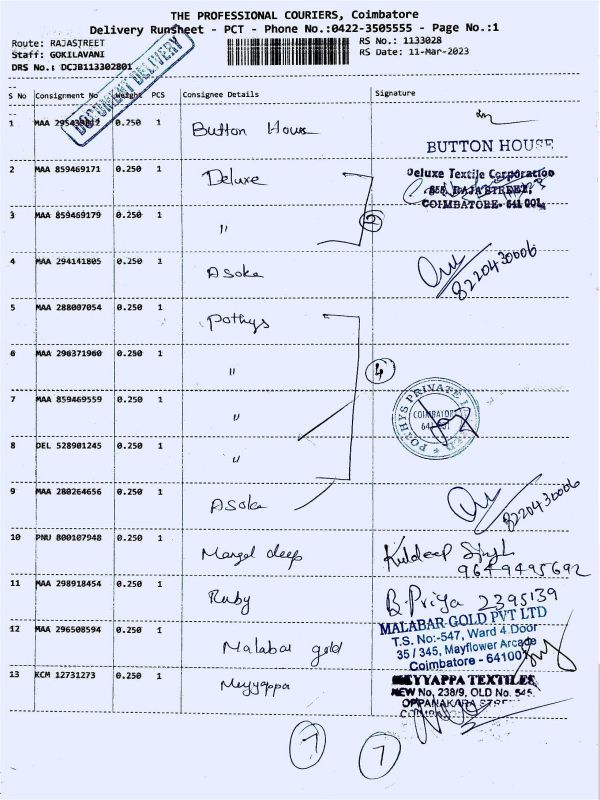 THE PROFESSIONAL COURIERS, Coimbatore
Delivery Runsheet - PCT - Phone No.:0422-3505555 - Page No.:1
Route: RAJASTREET
Staff: GOKILAVANI
DRS No.: DCJB113302801
RS No.: 1133028
RS Date: 11-Mar-2023
DOCUMENT DELIVERY
S No Consignment No Weight PCS Consignee Details Signature
1 MAA 0.250 1 Button House
BUTTON HOUSE
2 MAA 859469171 0.250 1 Deluxe
Deluxe Textile Corporation
RAJA STREET,
COIMBATORE- 641 001.
3 MAA 859469179 0.250 1 "
2
4 MAA 294141805 0.250 1 Asoka
8220430006
5 MAA 288007054 0.250 1 Pothys
6 MAA 296371960 0.250 1 "
4
7 MAA 859469559 0.250 1 "
POTHYS PRIVATE
COIMBATORE
8 DEL 528901245 0.250 1 "
9 MAA 280264656 0.250 1 Asoka
8220430006
10 PNU 800107948 0.250 1 Mangal deep
Kuldeep Singh
9649495692
11 MAA 298918454 0.250 1 Ruby
B. Priya 2395139
12 MAA 296508594 0.250 1 Malabar gold
MALABAR GOLD PVT LTD
T.S. No:-547, Ward 4 Door
35 / 345, Mayflower Arcade
Coimbatore - 641001
13 KCM 12731273 0.250 1 Meyyappa
MEYYAPPA TEXTILES
NEW No, 238/9, OLD No. 545,
OPPANAKARA STREET
7 7